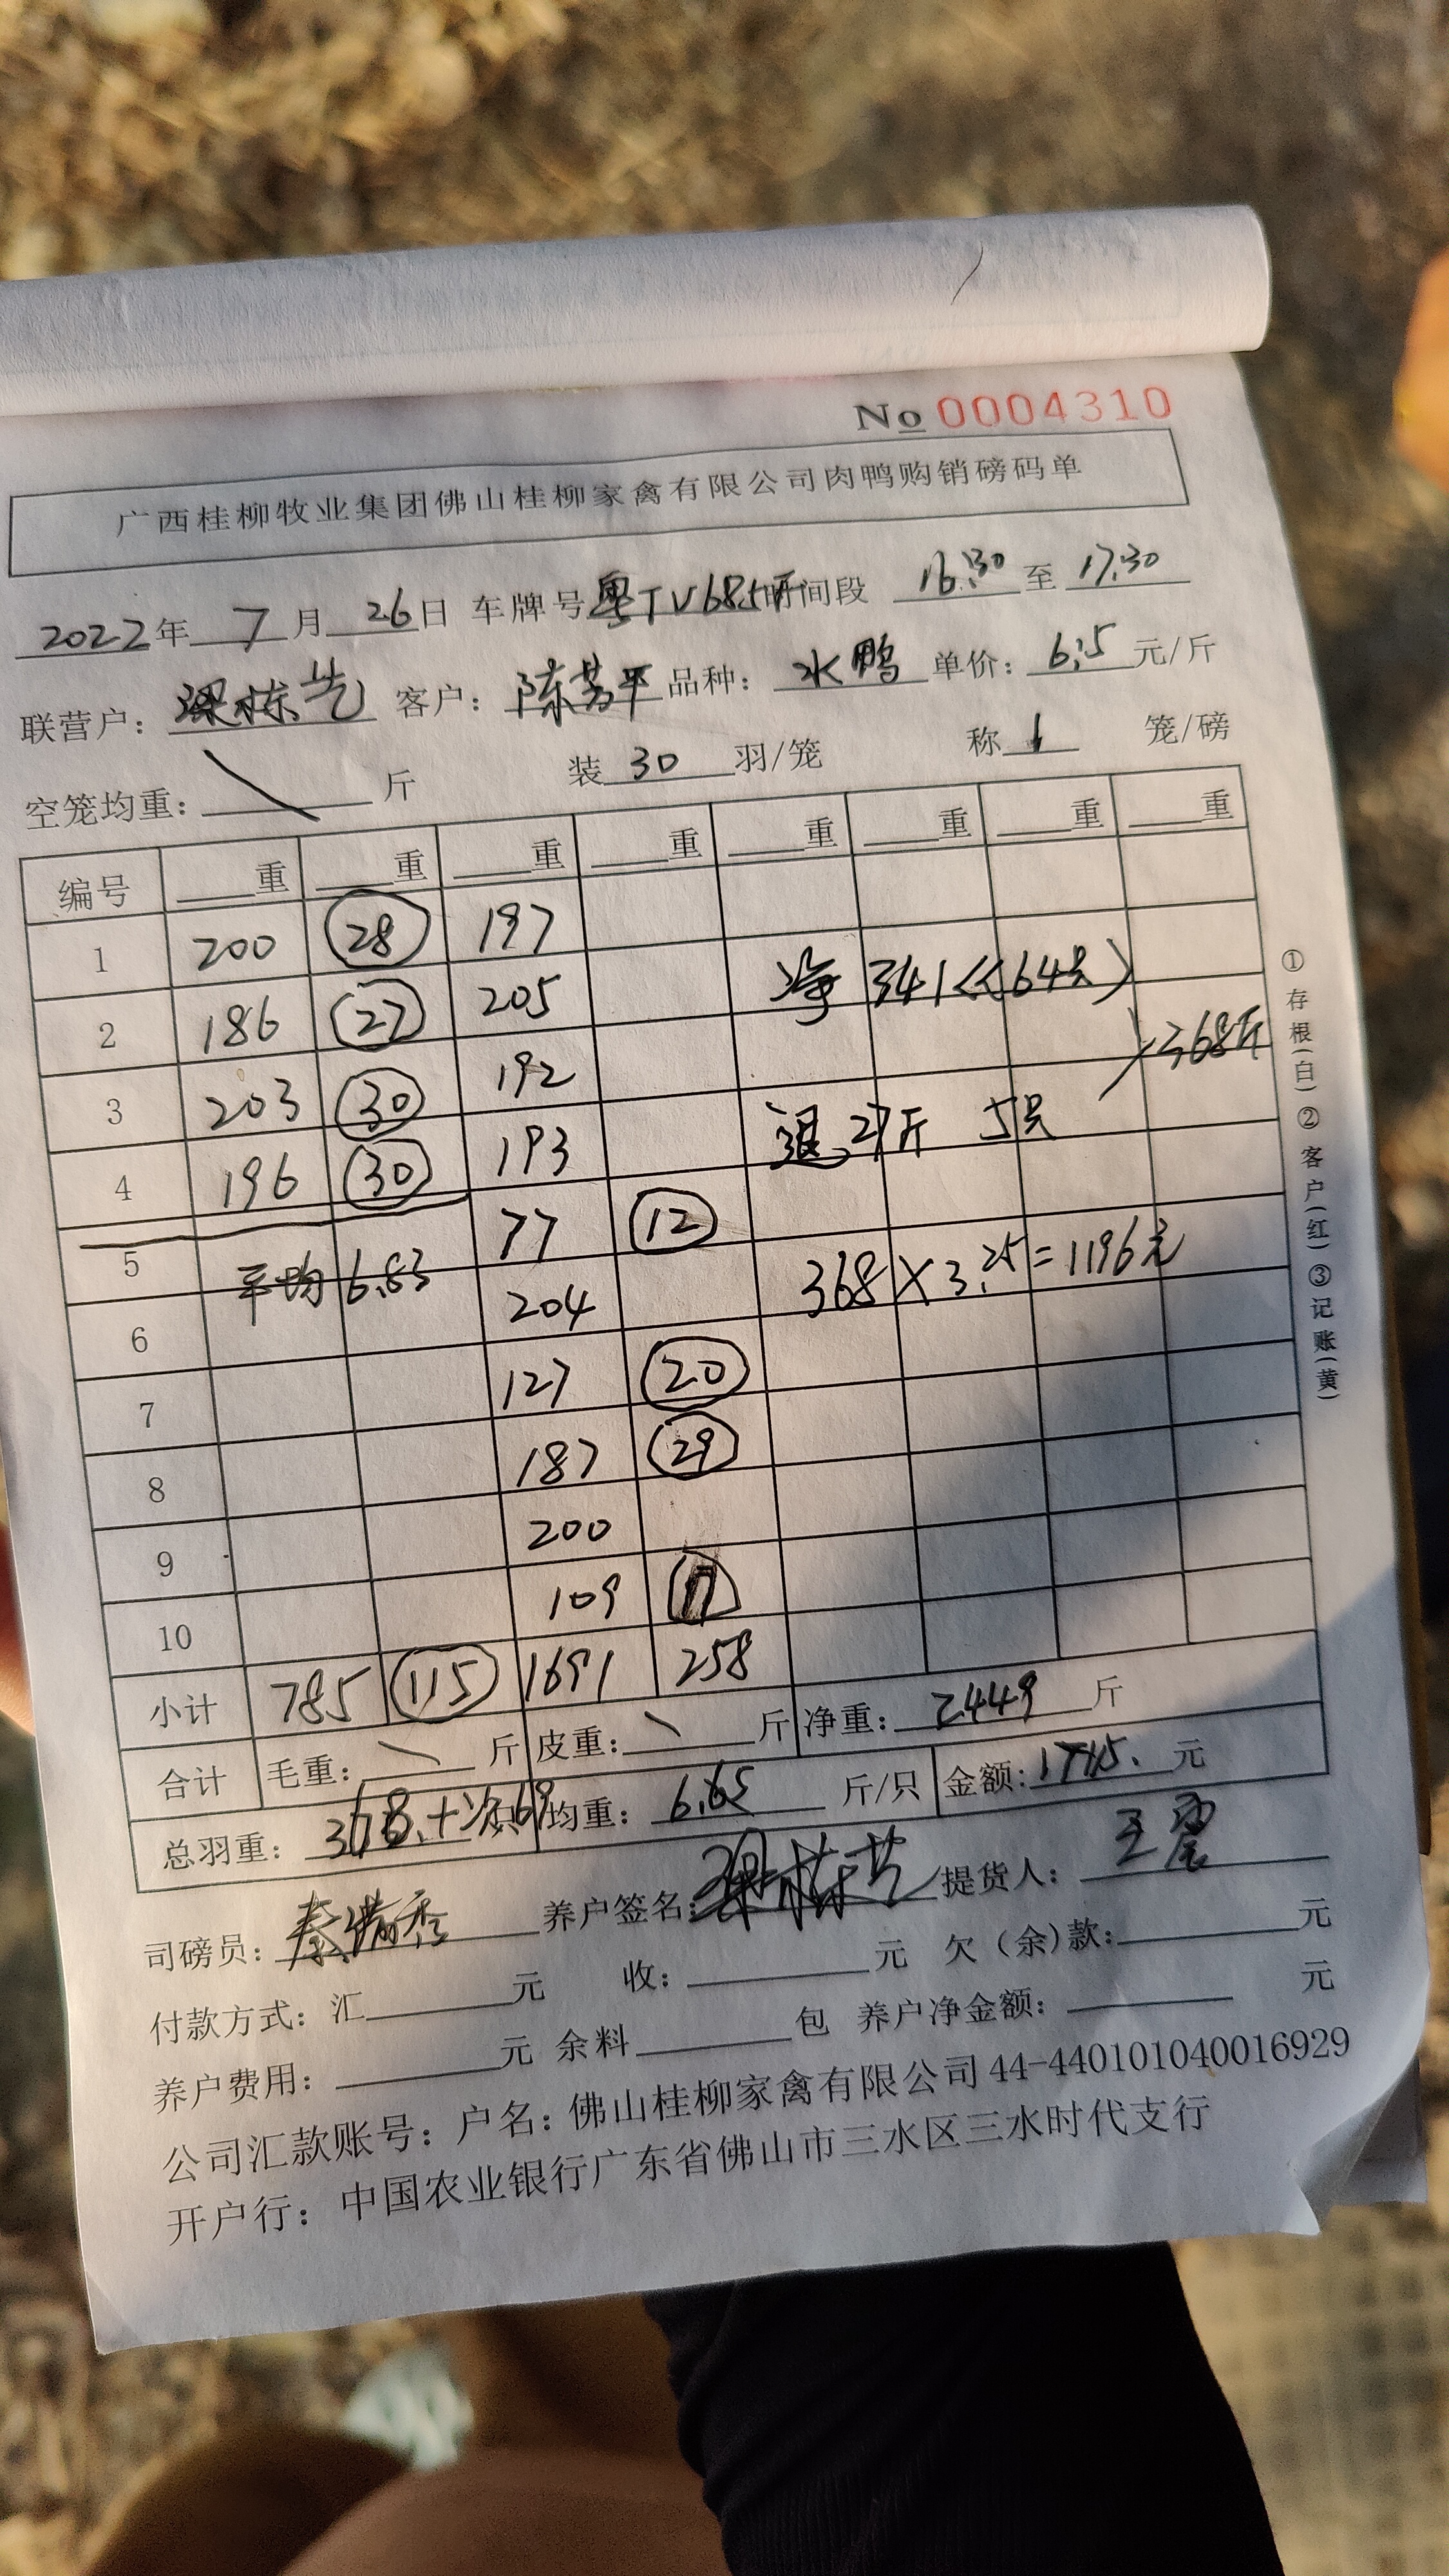 No 0004310
广西桂柳牧业集团佛山桂柳家禽有限公司肉鸭购销磅码单
2022年 7 月 26 日 车牌号 粤TV685 时间段 16:30 至 17:30
联营户: 梁栋 客户: 陈芳平 品种: 水鸭 单价: 6.5 元/斤
空笼均重: \ 斤 装 30 羽/笼 称 1 笼/磅
编号 重 重 重 重 重 重 重 重
1 200 28 197
2 186 27 205 净 341斤(64只)
3 203 30 192 368斤
4 196 30 193 退27斤 5只
5 平均 6.83 77 12
6 204 368×3.25=1196元
7 127 20
8 187 29
9 200
10 109 17
小计 785 115 1691 258
合计 毛重: \ 斤 皮重: \ 斤 净重: 2449 斤
总羽重: 只 均重: 6.65 斤/只 金额: 元
司磅员: 秦满秀 养户签名: 梁栋 提货人: 王震
付款方式: 汇 元 收: 元 欠(余)款: 元
养户费用: 元 余料 包 养户净金额: 元
公司汇款账号: 户名: 佛山桂柳家禽有限公司 44-440101040016929
开户行: 中国农业银行广东省佛山市三水区三水时代支行
①存根(白)②客户(红)③记账(黄)